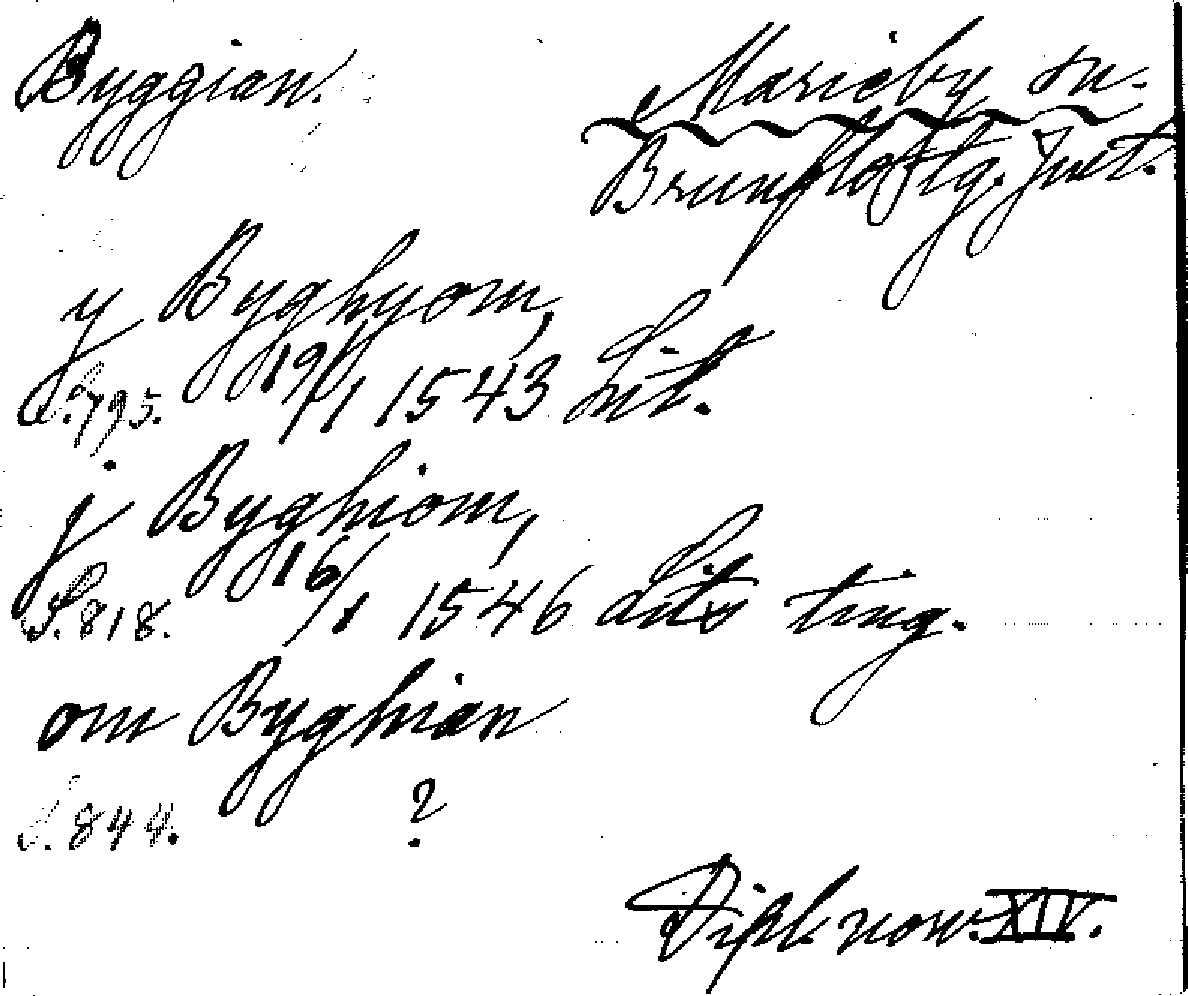 Byggian. Marieby sn.
Brunflo tg. Jmt.
y Byghyom,
S. 795. 19/1 1543 Lit.
j Byghiom,
S. 818. 16/1 1546 Lits ting.
om Byghian
S. 844. ?
Dipl. norv. XIV.